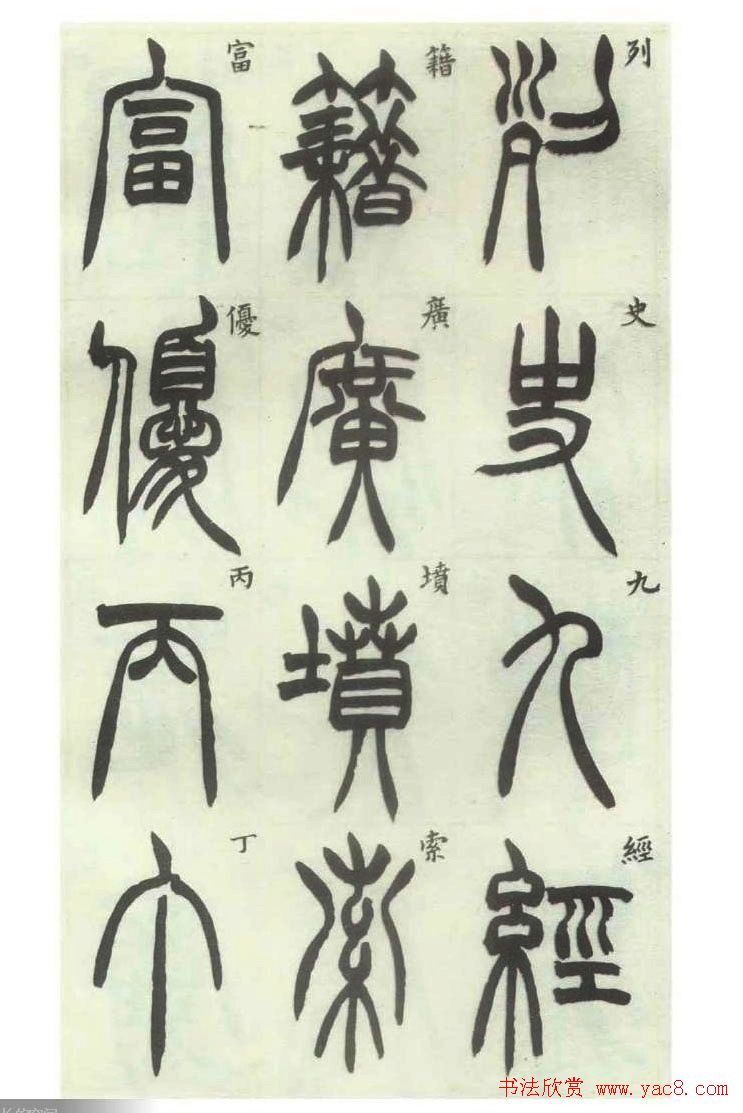 列史九經
籍廣墳索
富優丙丁
书法欣赏 www.yac8.com